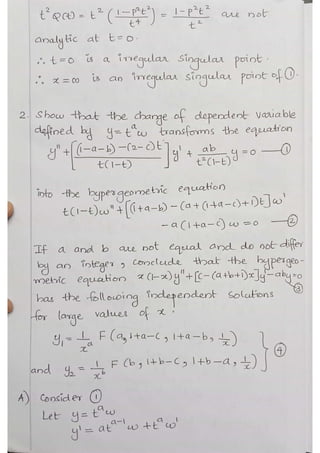 t² Q(t) = t² ( (1-p²t²) / t⁴ ) = (1-p²t²) / t² are not
analytic at t=0.
∴ t=0 is a irregular singular point.
∴ x=∞ is an irregular singular point of ①.
2. Show that the change of dependent variable
defined by y=t^a w transforms the equation
y'' + [ ((1-a-b)-(2-c)t) / (t(1-t)) ] y' + ab / (t²(1-t)) y = 0 — ①
into the hypergeometric equation
t(1-t)w'' + [(1+a-b) - (a+(1+a-c)+1)t] w'
- a(1+a-c)w = 0 — ②
If a and b are not equal and do not differ
by an integer, conclude that the hypergeo-
metric equation x(1-x)y''+[c-(a+b+1)x]y'-aby=0 ③
has the following independent solutions
for large values of x.
y₁ = 1/x^a F(a, 1+a-c, 1+a-b, 1/x)
and y₂ = 1/x^b F(b, 1+b-c, 1+b-a, 1/x) } ④
A) Consider ①
Let y = t^a w
y' = at^(a-1) w + t^a w'